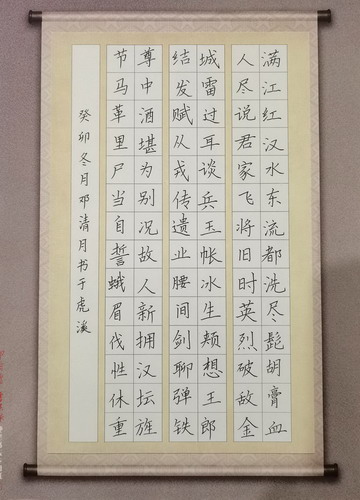 满江红汉水东流都洗尽髭胡膏血
人尽说君家飞将旧时英烈破敌金
城雷过耳谈兵玉帐冰生颊想王郎
结发赋从戎传遗业腰间剑聊弹铁
尊中酒堪为别况故人新拥汉坛旌
节马革里尸当自誓蛾眉伐性休重
癸卯冬月邓清月书于虎溪